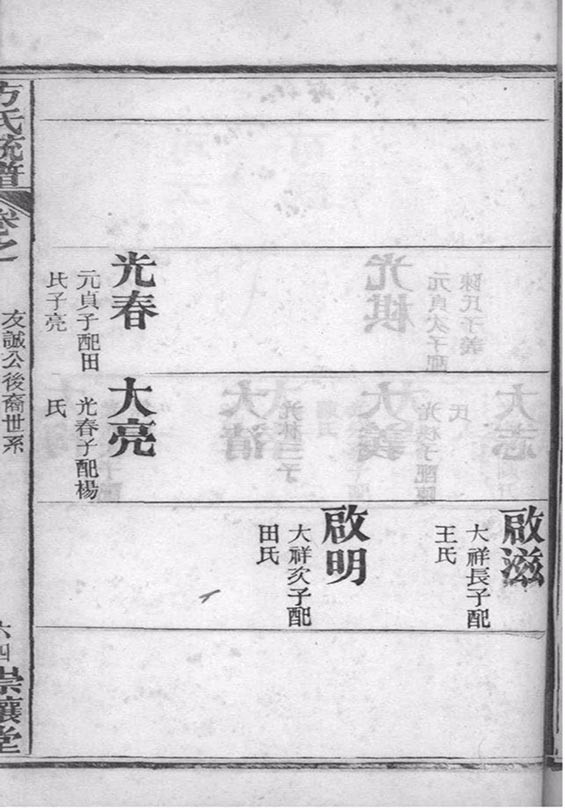 光春
元貞子配田
氏子亮
大亮
光春子配楊
氏
啟滋
大祥長子配
王氏
啟明
大祥次子配
田氏
方氏統譜
卷之
友誠公後裔世系
六四
崇讓堂